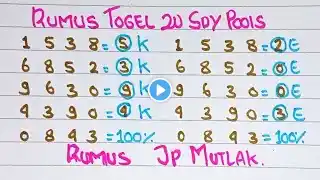 RUMUS TOGEL 2D SDY POOLS
1 5 3 8 = 5 K 1 5 3 8 = 2 E
6 8 5 2 = 3 K 6 8 5 2 = 6 E
9 6 3 0 = 9 K 9 6 3 0 = 0 E
4 3 9 0 = 4 K 9 3 9 0 = 3 E
0 8 4 3 = 100% 0 8 9 3 = 100%
RUMUS JP MUTLAK.